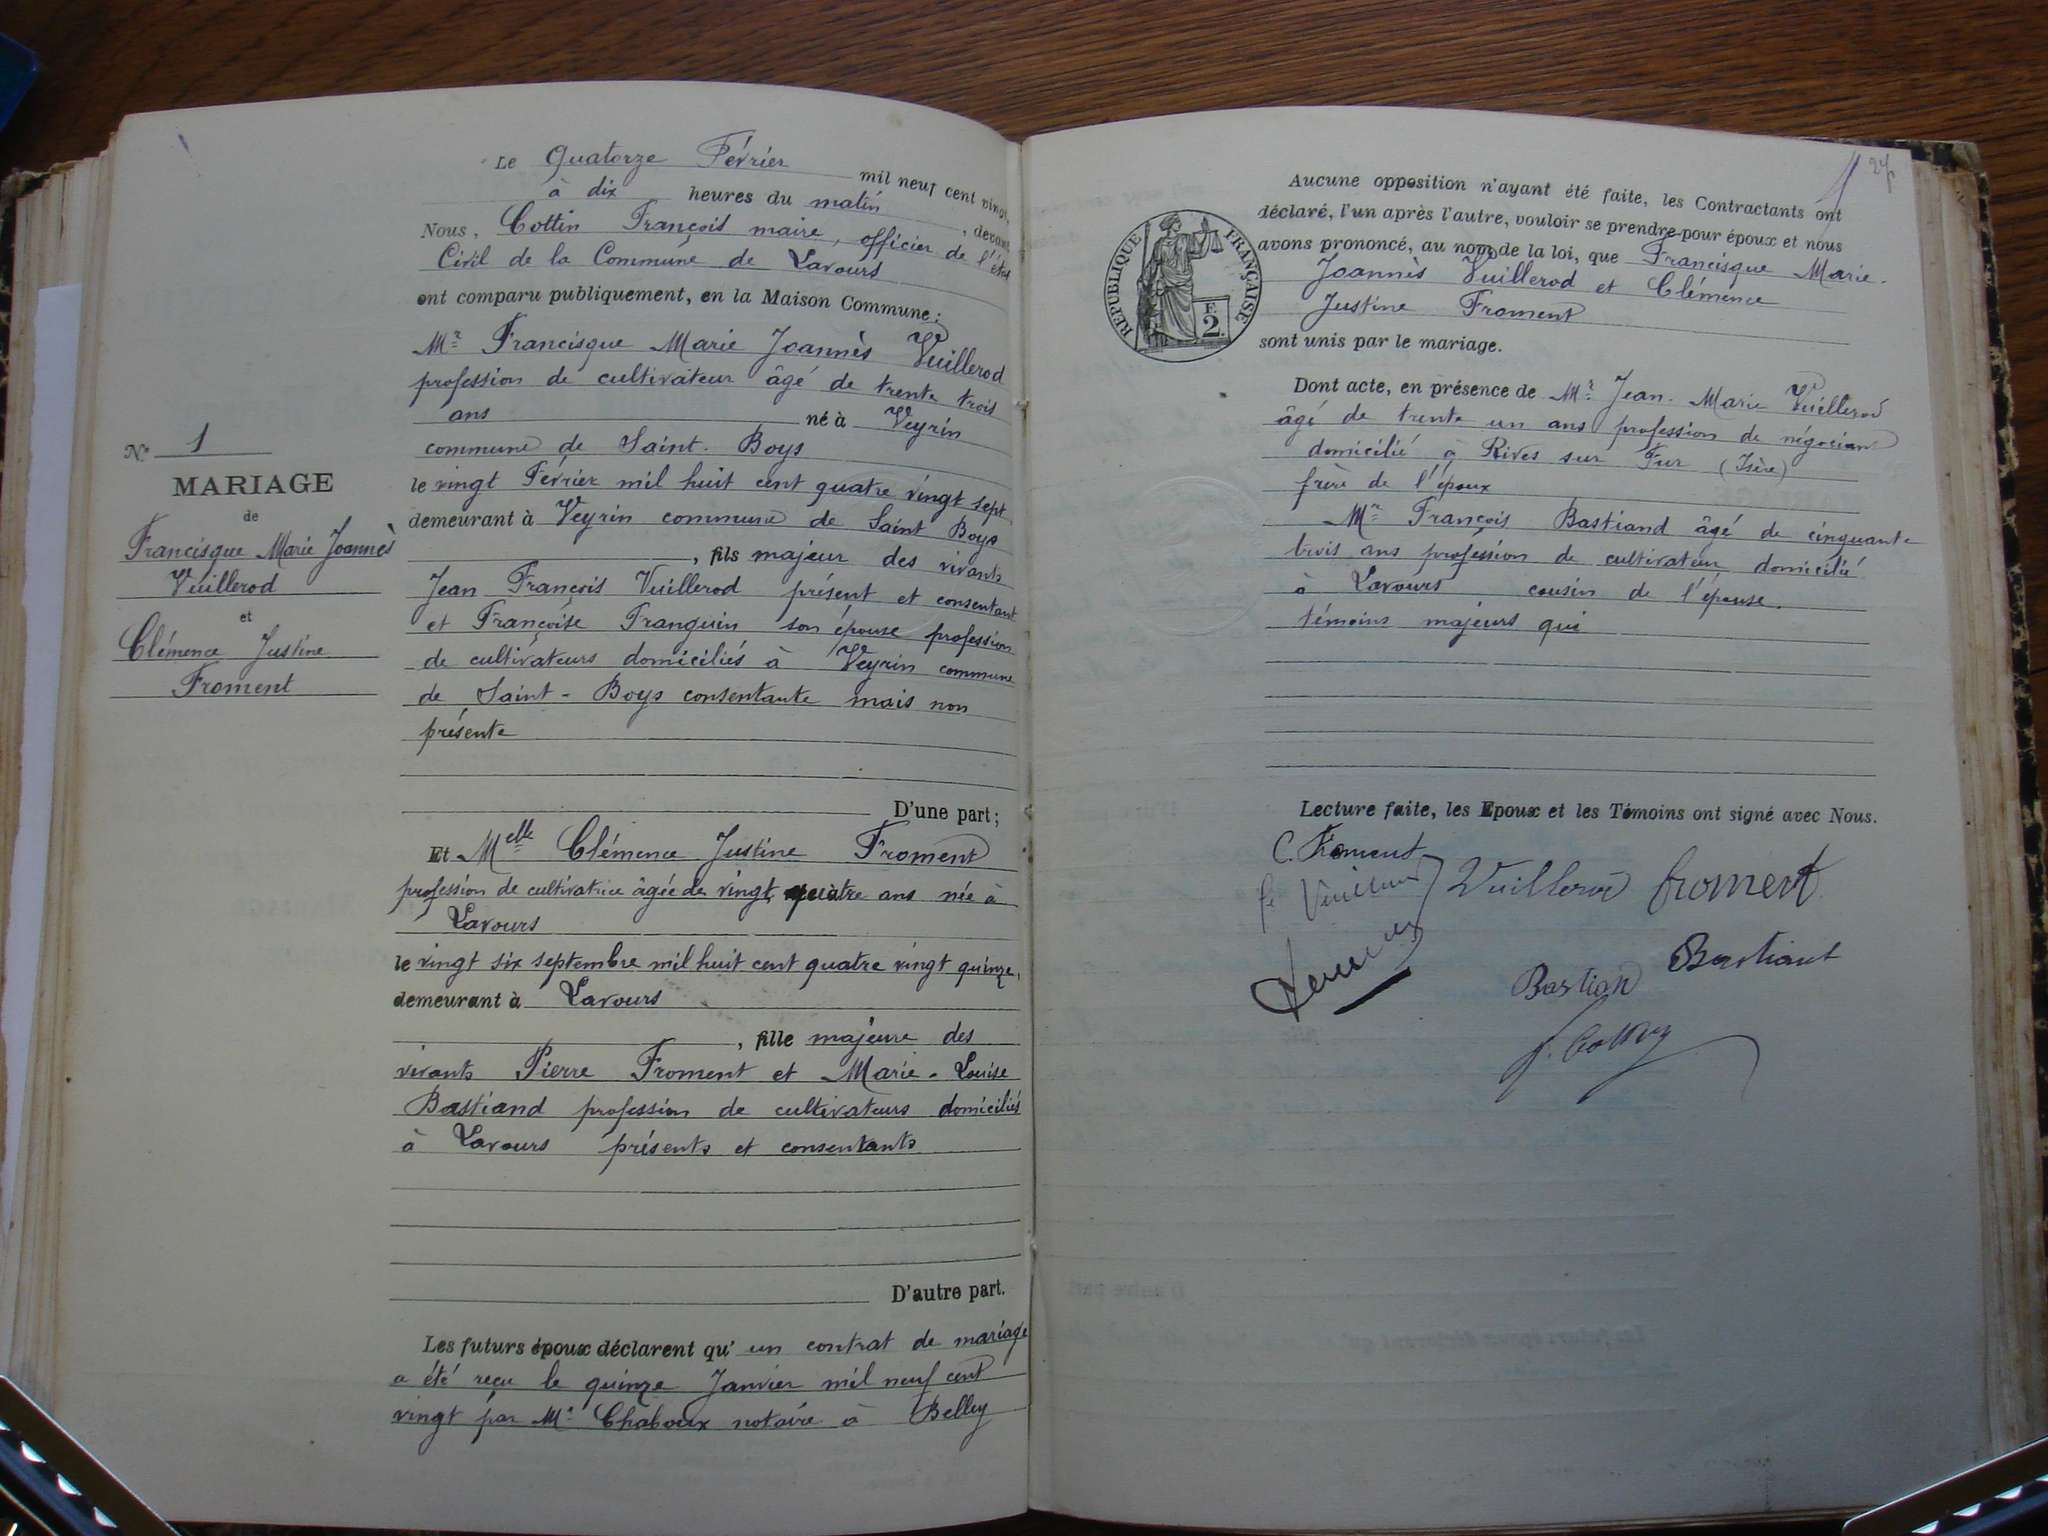 N° 1
MARIAGE
de
Francisque Marie Joannès
Vuillerod
et
Clémence Justine
Froment
Le Quatorze Février mil neuf cent vingt,
à dix heures du matin, devant
Nous, Cottin François maire, officier de l'état
Civil de la Commune de Lavours
ont comparu publiquement, en la Maison Commune:
Mr Francisque Marie Joannès Vuillerod
profession de cultivateur âgé de trente trois
ans né à Veyrin
commune de Saint-Boys
le vingt Février mil huit cent quatre vingt sept
demeurant à Veyrin commune de Saint Boys
, fils majeur des vivants
Jean François Vuillerod présent et consentant
et Françoise Franquin son épouse profession
de cultivateurs domiciliés à Veyrin commune
de Saint-Boys consentante mais non
présente
D'une part;
Et Melle Clémence Justine Froment
profession de cultivatrice âgée de vingt quatre ans née à
Lavours
le vingt six septembre mil huit cent quatre vingt quinze,
demeurant à Lavours
, fille majeure des
vivants Pierre Froment et Marie-Louise
Bastiand profession de cultivateurs domiciliés
à Lavours présents et consentants
D'autre part.
Les futurs époux déclarent qu'un contrat de mariage
a été reçu le quinze Janvier mil neuf cent
vingt par Me Chaboux notaire à Belley
27
RÉPUBLIQUE FRANÇAISE
F.
2.
Aucune opposition n'ayant été faite, les Contractants ont
déclaré, l'un après l'autre, vouloir se prendre pour époux et nous
avons prononcé, au nom de la loi, que Francisque Marie
Joannès Vuillerod et Clémence
Justine Froment
sont unis par le mariage.
Dont acte, en présence de Mr Jean-Marie Vuillerod
âgé de trente un ans profession de négociant
domicilié à Rives sur Fur (Isère)
frère de l'époux
Mr François Bastiand âgé de cinquante
trois ans profession de cultivateur domicilié
à Lavours cousin de l'épouse.
témoins majeurs qui
Lecture faite, les Epoux et les Témoins ont signé avec Nous.
C. Froment
Vuillerod Vuillerod Froment
Bastiand Bastiant
F. Cottin